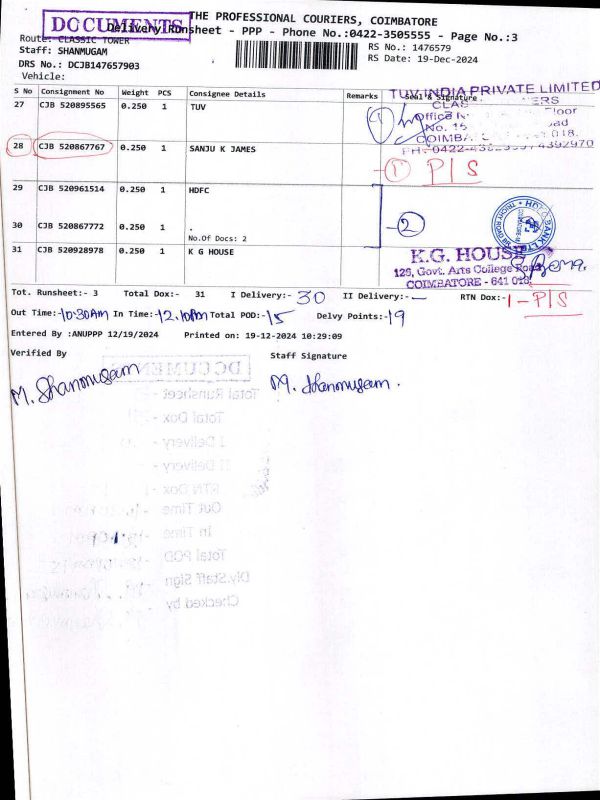 DOCUMENTS
THE PROFESSIONAL COURIERS, COIMBATORE
Delivery Runsheet - PPP - Phone No.:0422-3505555 - Page No.:3
Route: CLASSIC TOWER
Staff: SHANMUGAM
DRS No.: DCJB147657903
Vehicle:
RS No.: 1476579
RS Date: 19-Dec-2024
S No Consignment No Weight PCS Consignee Details Remarks Seal & Signature
27 CJB 520895565 0.250 1 TUV
TUV INDIA PRIVATE LIMITED
1
28 CJB 520867767 0.250 1 SANJU K JAMES
1 P|S
29 CJB 520961514 0.250 1 HDFC
30 CJB 520867772 0.250 1 .
No.Of Docs: 2
2
31 CJB 520928978 0.250 1 K G HOUSE
K.G. HOUSE
129, Govt. Arts College Road
COIMBATORE - 641 018.
Tot. Runsheet:- 3 Total Dox:- 31 I Delivery:- 30 II Delivery:- — RTN Dox:- 1 - P|S
Out Time:- 10:30Am In Time:- 12.10pm Total POD:- 15 Delvy Points:- 19
Entered By :ANUPPP 12/19/2024 Printed on: 19-12-2024 10:29:09
Verified By Staff Signature
M. Shanmugam M. Shanmugam.
DOCUMENTS
Total Runsheet -
Total Dox -
I Delivery -
II Delivery -
RTN Dox -
Out Time -
In Time -
Total POD -
Dly.Staff Sign
Checked by